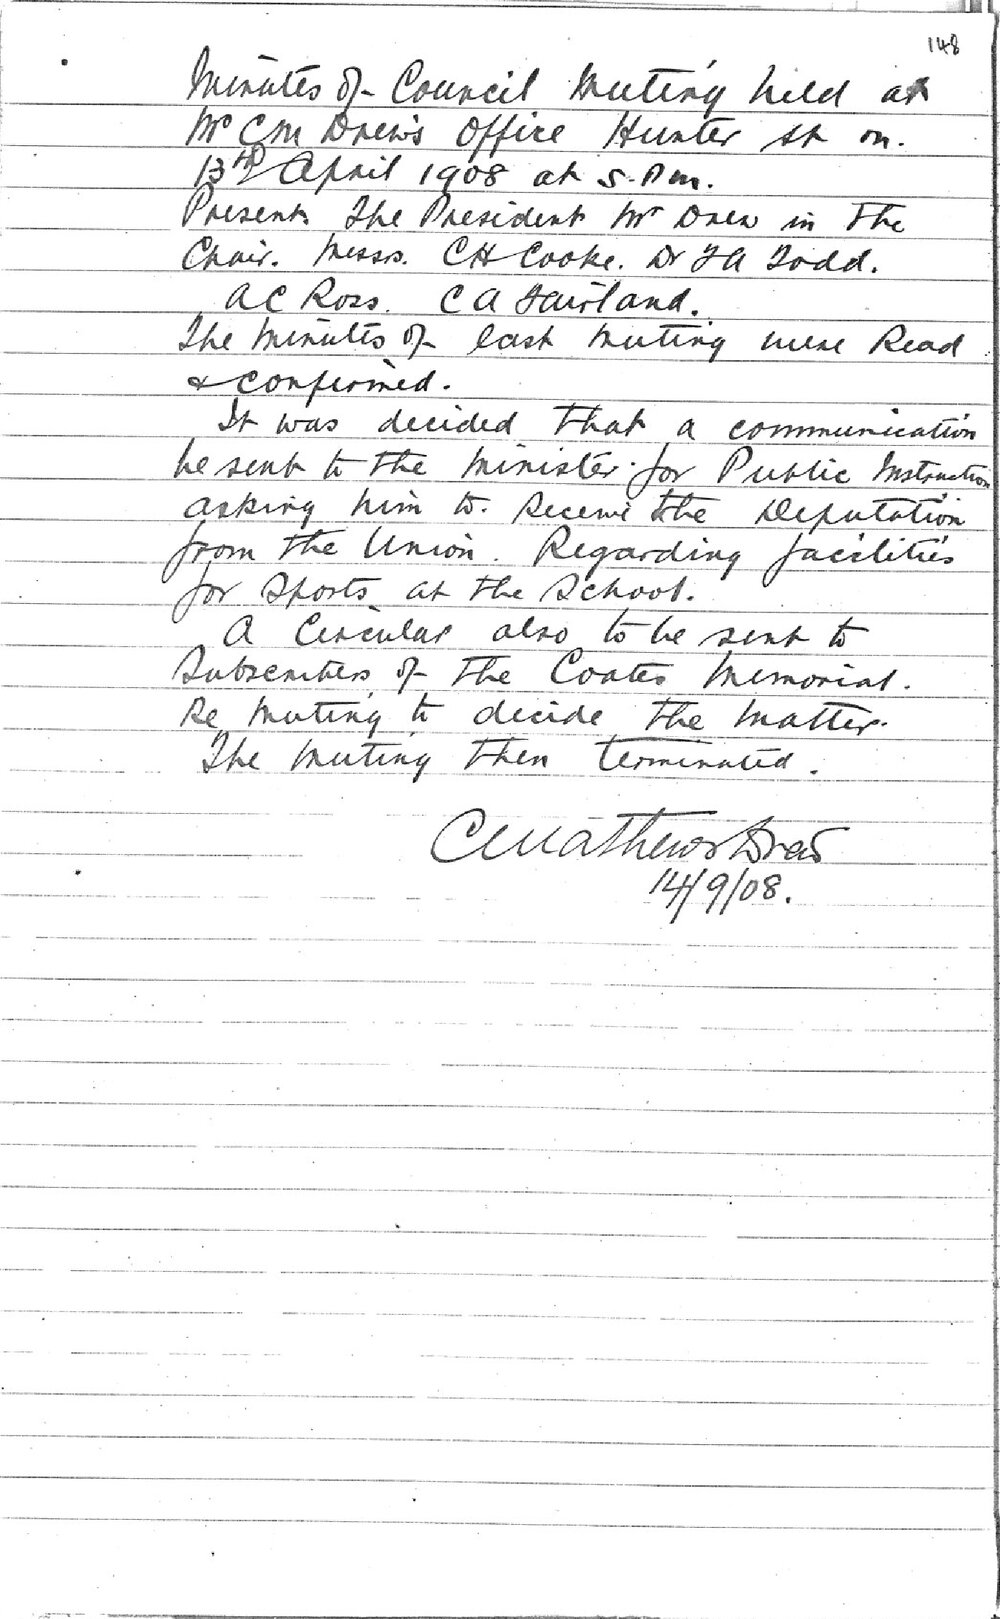 148
Minutes of Council Meeting held at
Mr C M Drew's Office Hunter St on.
13th April 1908 at 5. P m.
Present. The President Mr Drew in the
Chair. Messrs. C H Cooke. Dr F A Todd.
A C Ross. C A Fairland.
The Minutes of last Meeting were Read
& confirmed.
It was decided that a communication
be sent to the Minister for Public Instruction
asking him to. Receive the Deputation
from the Union. Regarding facilities
for Sports at the School.
A Circular also to be sent to
Subscribers of the Coates Memorial.
Re Meeting to decide the Matter.
The Meeting then terminated.
C Mathews Drew
14/9/08.